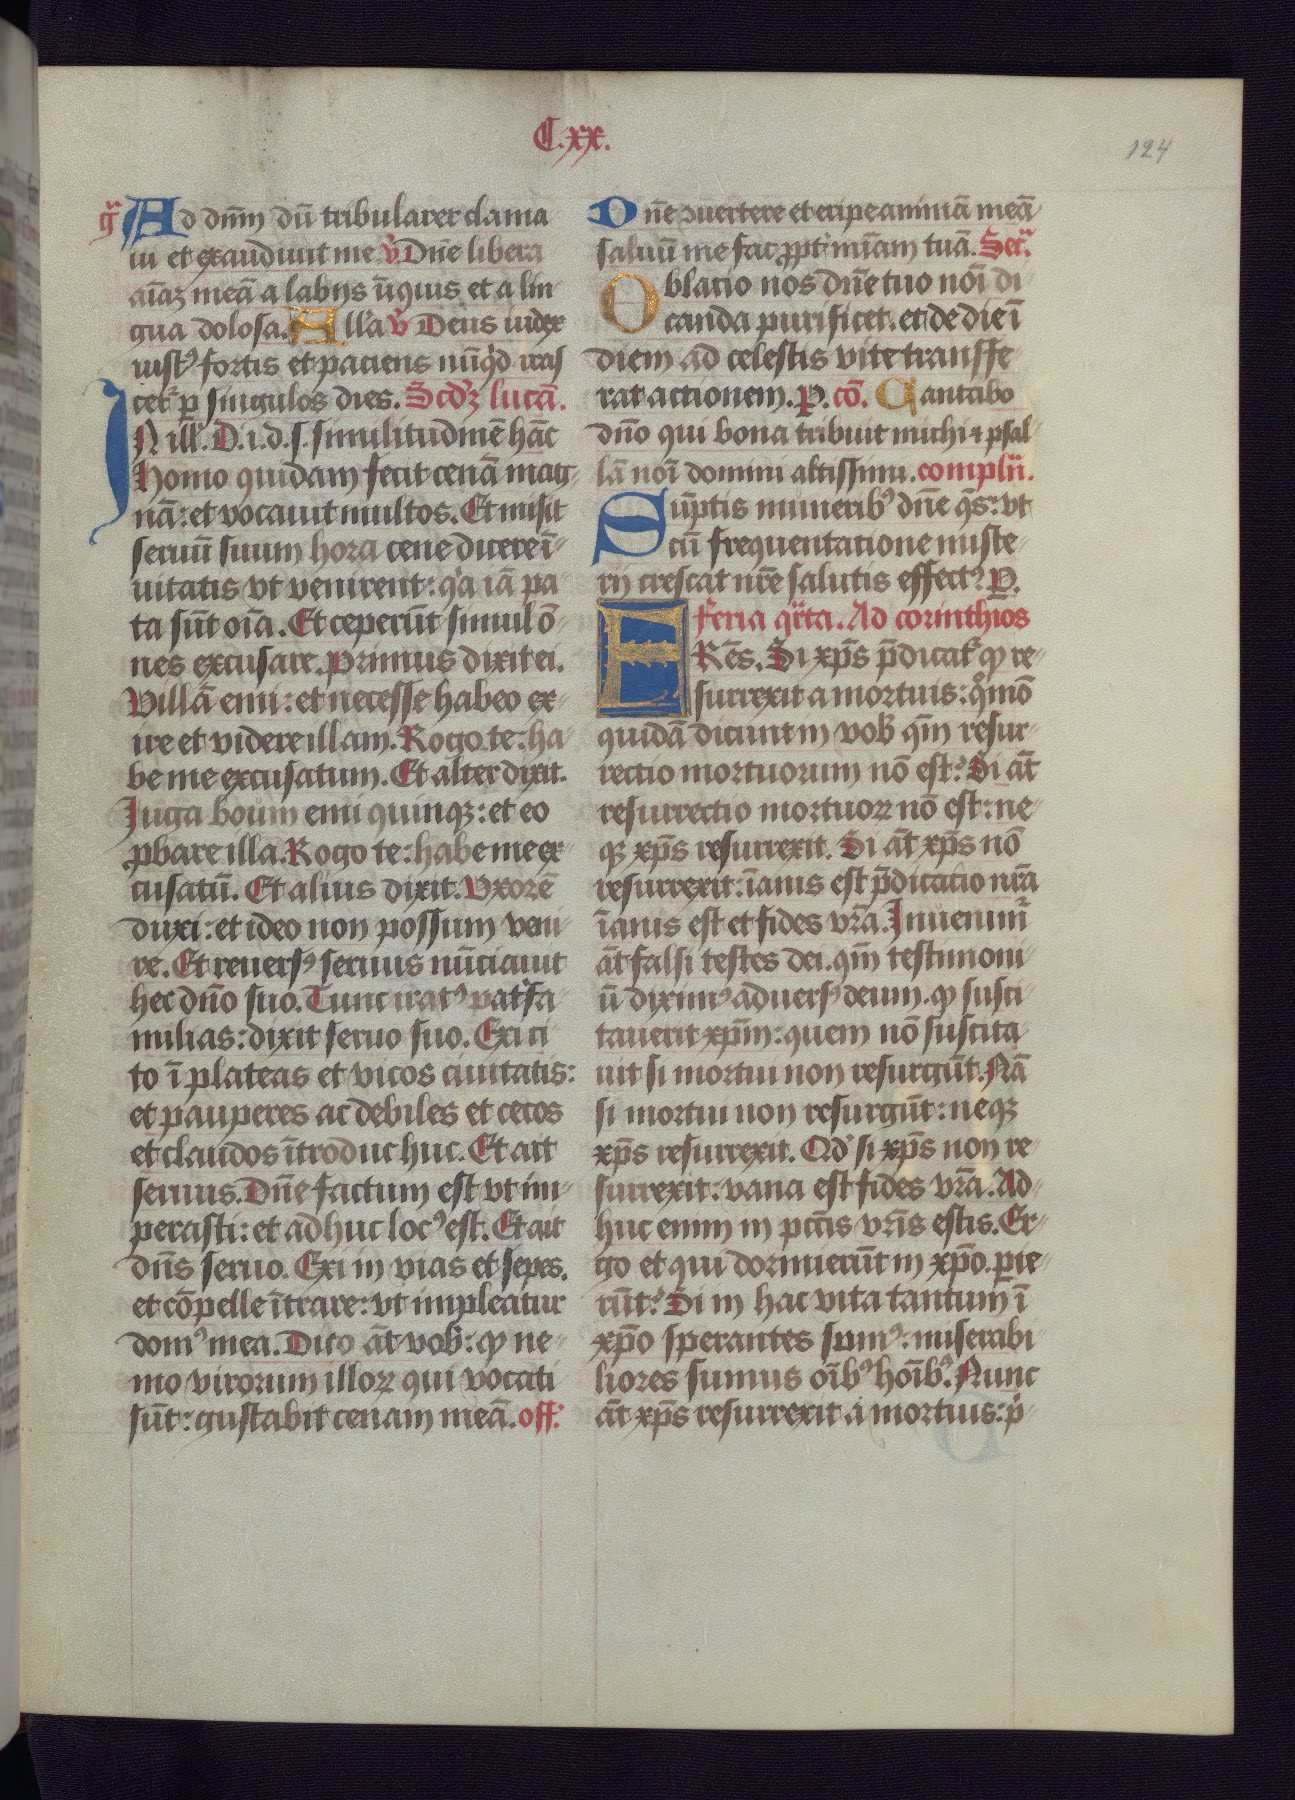 C.xx.
124
gͣ Ad dnm̄ dū tribularer clama
ui et exaudiuit me. v̇ Dn̄e libera
aīaꝫ meā a labijs īiquis et a lin
gua dolosa. Allā v̇ Deus iudex
iustꝰ fortis et paciens nūqͥd iras
cet᷑ ꝑ singulos dies. Scd̄ꝫ lucā.
IN ill̄. D. i. d. s. similitudinē hāc
Homo quidam fecit cenā mag-
nā: et vocauit multos. Et misit
seruū suum hora cene dicere ī-
uitatis vt venirent: qͥa iā pa
ta sūt oīa. Et ceperūt simul ō-
nes excusare. Primus dixit ei.
Villā emi: et necesse habeo ex-
ire et videre illam. Rogo te: ha-
be me excusatum. Et alter dixit.
Juga boum emi quinqꝫ: et eo
ꝓbare illa. Rogo te: habe me ex-
cusatū. Et alius dixit. Vxorē
duxi: et ideo non possum veni-
re. Et reuersꝰ seruus nūciauit
hec dn̄o suo. Tunc iratꝰ patͬfa-
milias: dixit seruo suo. Exi ci-
to ī plateas et vicos ciuitatis:
et pauperes ac debiles et cecos
et claudos ītroduc huc. Et ait
seruus. Dn̄e factum est vt im-
perasti: et adhuc locꝰ est. Et ait
dn̄s seruo. Exi in vias et sepes.
et cōpelle ītrare: vt impleatur
domꝰ mea. Dico āt vob̄: ꝙ ne-
mo virorum illoꝝ qui vocati
sūt: gustabit cenam meā. off.
Dn̄e ꝯuertere et eripe animā meā
saluū me fac ꝓpt᷑ mīam tuā. Secͬ.
Oblatio nos dn̄e tuo noī di-
canda purificet. et de die ī
diem ad celestis vite transfe-
rat actionem. P. cō. Cantabo
dn̄o qui bona tribuit michi ⁊ psal-
lā noī domini altissimi. complr̄.
Sūptis muneribꝰ dn̄e qs̄: vt
cū frequentatione miste-
rij crescat nr̄e salutis effectꝰ. P.
Feria qͬta. Ad corinthios
FRēs. Si xp̄s p̄dicat᷑ ꝙ re-
surrexit a mortuis: qͦmō
quidā dicunt in vob̄ qm̄ resur-
rectio mortuorum nō est? Si āt
resurrectio mortuoꝝ nō est: ne-
qꝫ xp̄s resurrexit. Si āt xp̄s nō
resurrexit: īanis est p̄dicatio nr̄a
īanis est et fides vr̄a. Inuenimͬ
āt falsi testes dei. qm̄ testimoni-
ū diximꝰ aduersꝰ deum. ꝙ susci-
tauerit xp̄m: quem nō suscita-
uit si mortui non resurgūt. Nā
si mortui non resurgūt: neqꝫ
xp̄s resurrexit. Qdͥ si xp̄s non re-
surrexit: vana est fides vr̄a. Ad-
huc enim in pctīs vr̄is estis. Er-
go et qui dormierūt in xp̄o. ꝑie-
rūt? Si in hac vita tantum ī
xp̄o sperantes sumꝰ: miserabi-
liores sumus oībꝰ hoībꝰ. Nunc
āt xp̄s resurrexit a mortuis: pͥ-